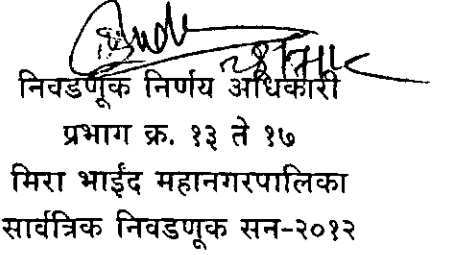 निवडणूक निर्णय अधिकारी
प्रभाग क्र. १३ ते १७
मिरा भाईंद महानगरपालिका
सार्वत्रिक निवडणूक सन-२०१२